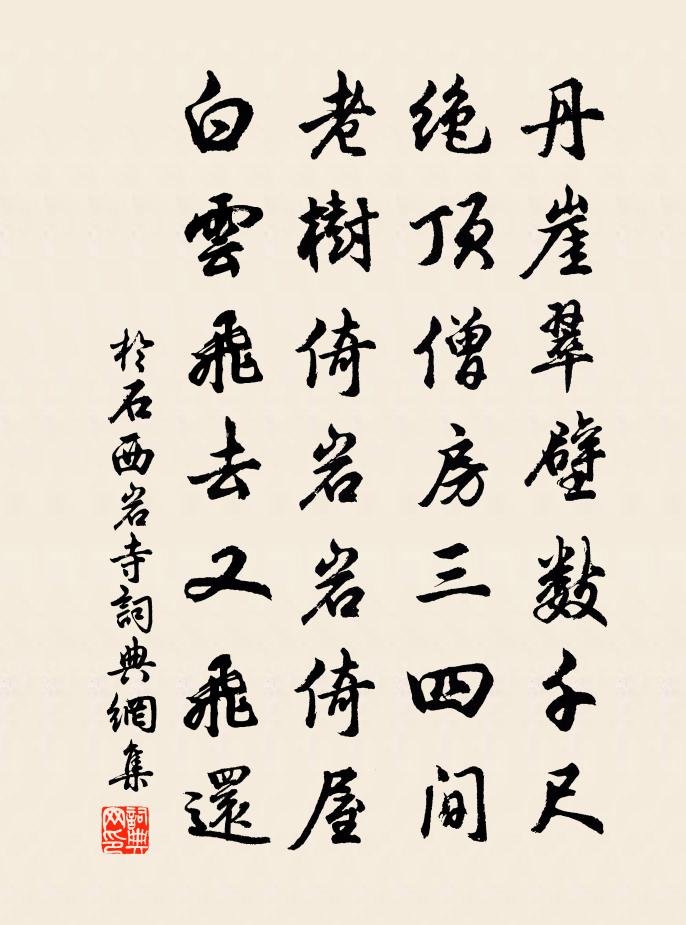 丹崖翠壁数千尺
绝顶僧房三四间
老樹倚岩岩倚屋
白雲飛去又飛還
於石西岩寺詞典網集
詞典網印